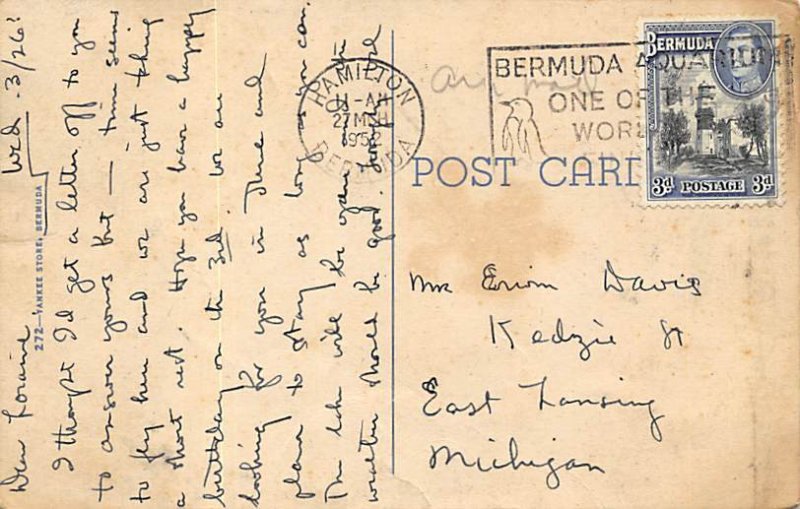 Wed - 3/26:
Dear Loraine,
I thought I'd get a letter off to you
to answer yours but — time seems
to fly here and we are just taking
a short rest. Hope you have a happy
birthday on the 3rd. We are
looking for you in June and
plan to stay as long as you can.
The lake will be open and the
weather should be good.
272—YANKEE STORE, BERMUDA
HAMILTON
11-AM
27 MCH
1952
BERMUDA
air mail
BERMUDA AQUARIUM
ONE OF THE
WORL
BERMUDA
3d POSTAGE 3d
POST CARD
Mrs Erwin Davis
Kedzie St
East Lansing
Michigan